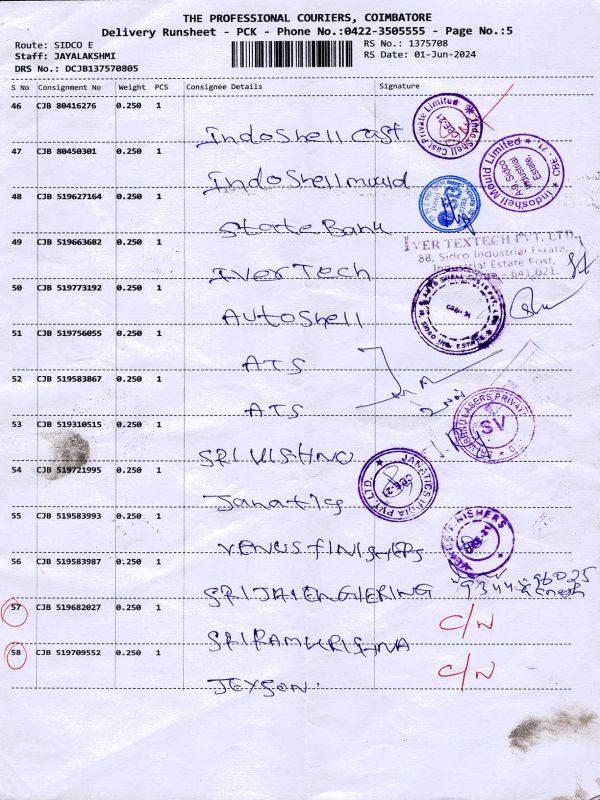 THE PROFESSIONAL COURIERS, COIMBATORE
Delivery Runsheet - PCK - Phone No.:0422-3505555 - Page No.:5
Route: SIDCO E
RS No.: 1375708
Staff: JAYALAKSHMI
RS Date: 01-Jun-2024
DRS No.: DCJB137570805
S No Consignment No Weight PCS Consignee Details Signature
46 CJB 80416276 0.250 1
Indoshell cast
Indo Shell Cast Private Limited CBE-21
47 CJB 80450301 0.250 1
Indoshell mould
Indoshell Mould Limited CBE - 21
A-9 Sidco
Industrial
Estate
48 CJB 519627164 0.250 1
State Bank
49 CJB 519663682 0.250 1
IVER TEXTECH PVT. LTD.,
88, Sidco Industrial Estate,
Industrial Estate Post,
- 641 021.
Iver Tech
50 CJB 519773192 0.250 1
Autoshell
51 CJB 519756055 0.250 1
ATS
52 CJB 519583867 0.250 1
ATS
53 CJB 519310515 0.250 1
LASERS PRIVATE
SV
SRI VISHNO
54 CJB 519721995 0.250 1
JANATICS INDIA PVT. LTD.
CBE-21
Janatics
55 CJB 519583993 0.250 1
VENUS FINISHERS
56 CJB 519583987 0.250 1
SRI JAI ENGIERING
57 CJB 519682027 0.250 1
C/N
SRI RAMKRISHNA
58 CJB 519709552 0.250 1
C/N
JEYSON